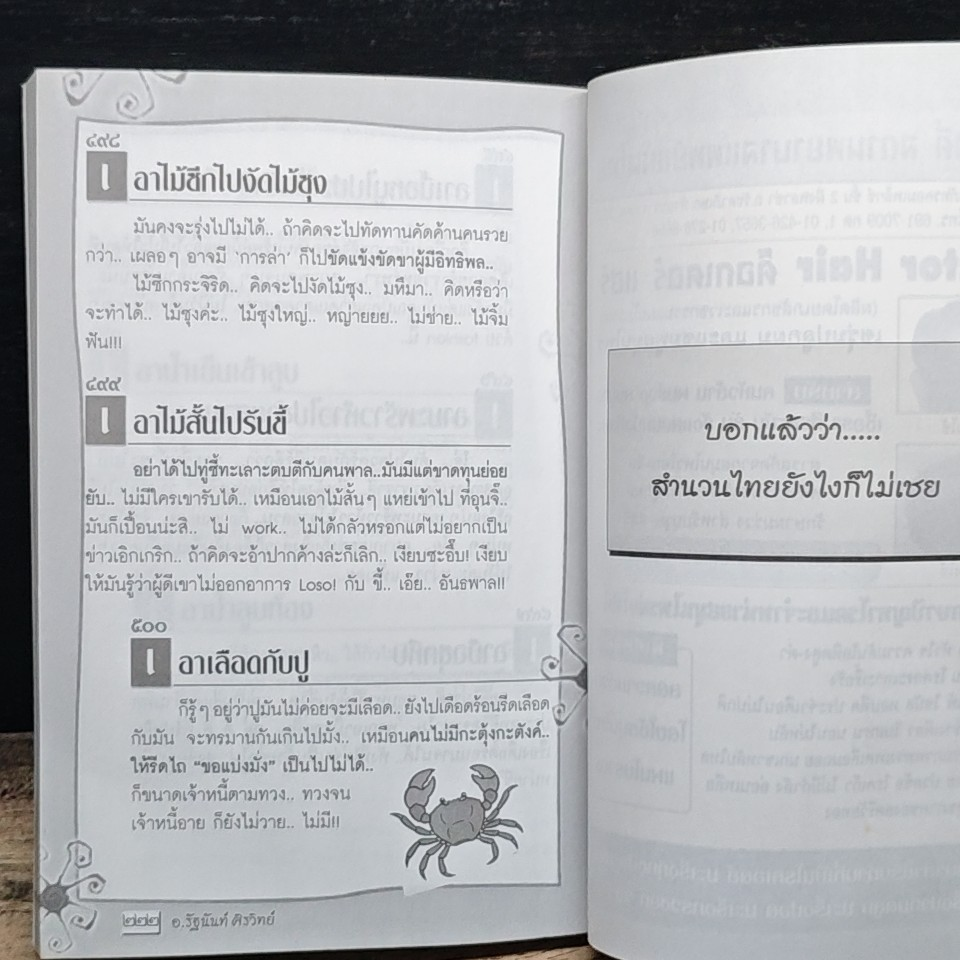 ๔๙๘
เอาไม้ซีกไปงัดไม้ซุง
มันคงจะรุ่งไปไม่ได้.. ถ้าคิดจะไปทัดทานคัดค้านคนรวย
กว่า.. เผลอๆ อาจมี 'การล่ำ' ก็ไปขัดแข้งขัดขาผู้มีอิทธิพล..
ไม้ซีกกระจิริด.. คิดจะไปงัดไม้ซุง.. มหึมา.. คิดหรือว่า
จะทำได้.. ไม้ซุงค่ะ.. ไม้ซุงใหญ่.. หญ่ายยย.. ไม่ช่าย.. ไม้จิ้ม
ฟัน!!!
๔๙๙
เอาไม้สั้นไปรันขี้
อย่าได้ไปทู่ซี้ทะเลาะตบตีกับคนพาล..มันมีแต่ขาดทุนย่อย
ยับ.. ไม่มีใครเขารับได้.. เหมือนเอาไม้สั้นๆ แหย่เข้าไป ที่อุนจิ๊..
มันก็เปื้อนน่ะสิ.. ไม่ work.. ไม่ได้กลัวหรอกแต่ไม่อยากเป็น
ข่าวเอิกเกริก.. ถ้าคิดจะอ้าปากค้างล่ะก็เลิก.. เงียบซะอึ๊บ! เงียบ
ให้มันรู้ว่าผู้ดีเขาไม่ออกอาการ Loso! กับ ขี้.. เอ๊ย.. อันธพาล!!
๕๐๐
เอาเลือดกับปู
ก็รู้ๆ อยู่ว่าปูมันไม่ค่อยจะมีเลือด.. ยังไปเดือดร้อนรีดเลือด
กับมัน จะทรมานกันเกินไปมั้ง.. เหมือนคนไม่มีกะตุ้งกะตังค์..
ให้รีดไถ "ขอแบ่งมั่ง" เป็นไปไม่ได้..
ก็ขนาดเจ้าหนี้ตามทวง.. ทวงจน
เจ้าหนี้อาย ก็ยังไม่วาย.. ไม่มี!!
๒๒๒ อ.รัฐนันท์ ศิรวิทย์
บอกแล้วว่า.....
สำนวนไทยยังไงก็ไม่เชย